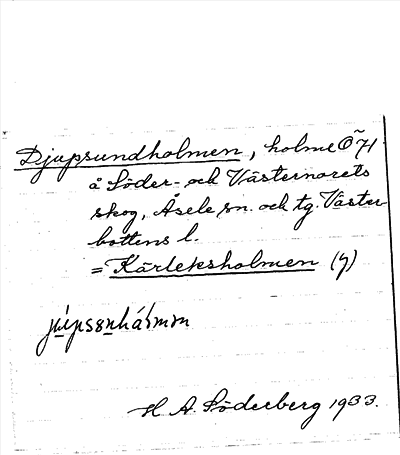 Djupsundholmen, holme
å Söder- och Västernorets
skog, Åsele sn. och tg. Väster-
bottens l.
= Kärleksholmen (y)
H. A. Söderberg 1933.